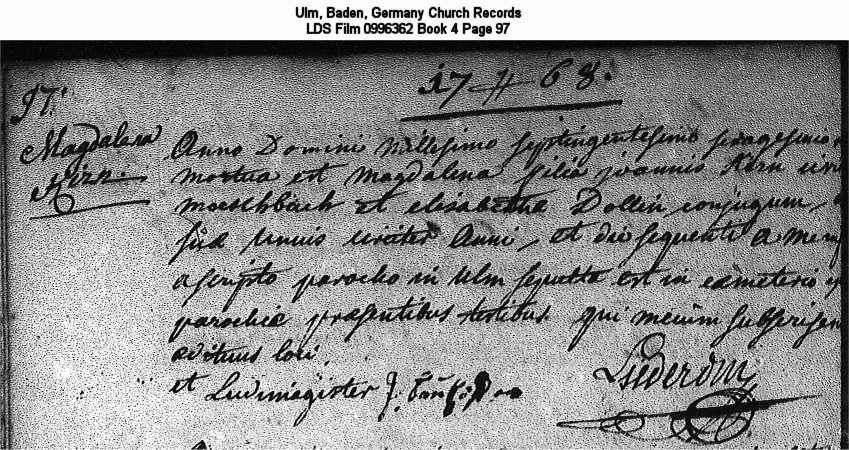 Ulm, Baden, Germany Church Records
LDS Film 0996362 Book 4 Page 97
1768.
97.
Magdalena
Anno Domini Millesimo septingentesimo sexagesimo
Kirn.
mortua est Magdalena filia joannis Kirn
moesbach et elisabetha Dollin conjugum,
suae unius circiter Anni, et die sequenti a me
ascripto parocho in Ulm sepulta est in caemeterio
parochiae praesentibus testibus qui mecum
aedituus loci.
et Ludimagister J.